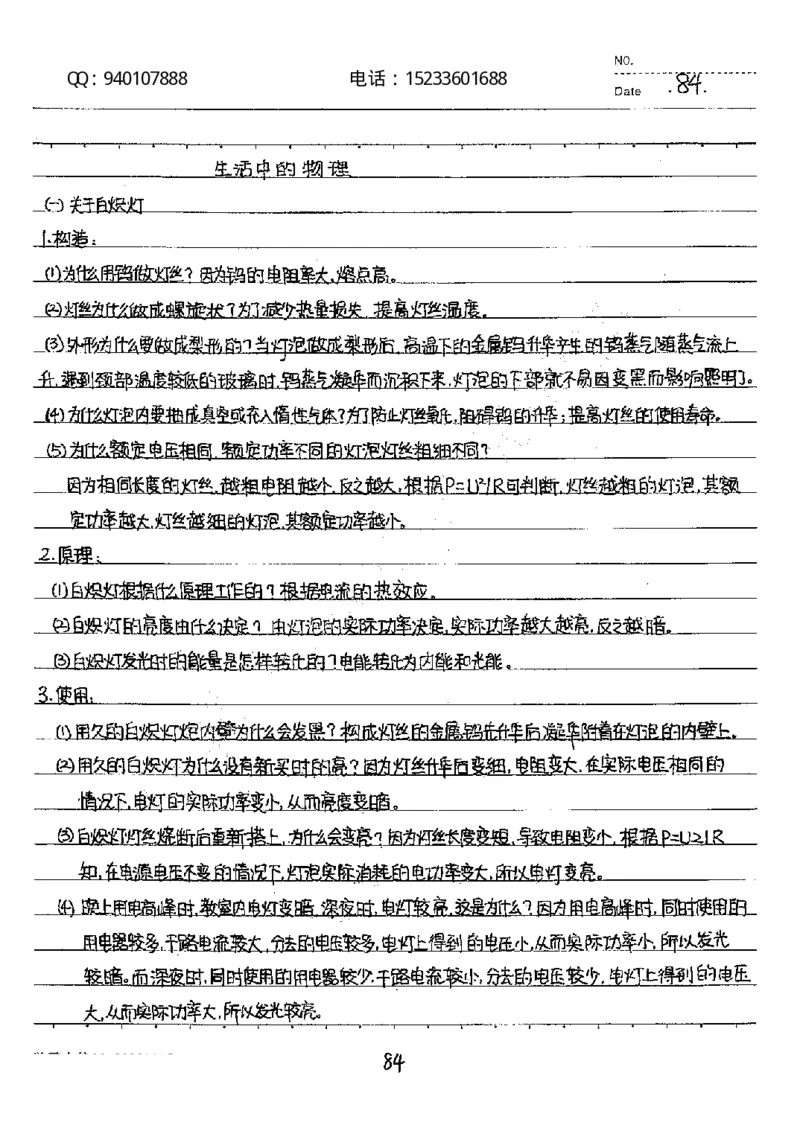 NO.
QQ：940107888 电话：15233601688
Date .84.
生活中的物理
(一)关于白炽灯
1.构造：
(1)为什么用钨做灯丝？因为钨的电阻率大，熔点高。
(2)灯丝为什么做成螺旋状？为了减少热量损失，提高灯丝温度。
(3)外形为什么要做成梨形的？当灯泡做成梨形后，高温下的金属钨升华产生的钨蒸气随蒸气流上
升，遇到颈部温度较低的玻璃时，钨蒸气凝华而沉积下来，灯泡的下部就不易因变黑而影响照明了。
(4)为什么灯泡内要抽成真空或充入惰性气体？为了防止灯丝氧化，阻碍钨的升华；提高灯丝的使用寿命。
(5)为什么额定电压相同，额定功率不同的灯泡灯丝粗细不同？
因为相同长度的灯丝，越粗电阻越小，反之越大，根据P=U²/R可判断，灯丝越粗的灯泡，其额
定功率越大，灯丝越细的灯泡，其额定功率越小。
2.原理：
(1)白炽灯根据什么原理工作的？根据电流的热效应。
(2)白炽灯的亮度由什么决定？由灯泡的实际功率决定，实际功率越大越亮，反之越暗。
(3)白炽灯发光时的能量是怎样转化的？电能转化为内能和光能。
3.使用：
(1)用久的白炽灯灯泡内壁为什么会发黑？构成灯丝的金属钨先升华后凝华附着在灯泡的内壁上。
(2)用久的白炽灯为什么没有新买时的亮？因为灯丝升华后变细，电阻变大，在实际电压相同的
情况下，电灯的实际功率变小，从而亮度变暗。
(3)白炽灯灯丝烧断后重新搭上，为什么会变亮？因为灯丝长度变短，导致电阻变小，根据P=U2/R
知，在电源电压不变的情况下，灯泡实际消耗的电功率变大，所以电灯变亮。
(4)晚上用电高峰时，教室内电灯变暗，深夜时，电灯较亮，这是为什么？因为用电高峰时，同时使用的
用电器较多，干路电流较大，分去的电压较多，电灯上得到的电压小，从而实际功率小，所以发光
较暗。而深夜时，同时使用的用电器较少，干路电流较小，分去的电压较少，电灯上得到的电压
大，从而实际功率大，所以发光较亮。
84